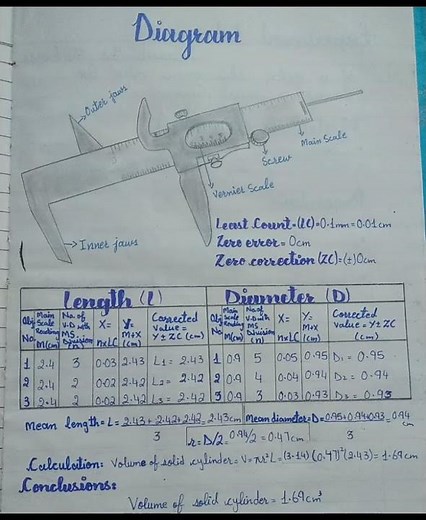 Diagram
Outer jaws
Main Scale
Screw
Vernier Scale
Inner jaws
Least Count=(LC)=0.1mm=0.01cm
Zero error=0cm
Zero correction (ZC)=(±)0cm
Length (L) Diameter (D)
Obj No. Main Scale Reading M(cm) No. of V.D with MS Division (n) X= nxLC Y= M+X (cm) Corrected value = Y± ZC (cm) Obj No. Main Scale Reading M(cm) No. of V.D with MS Division (n) X= nxLC Y= M+X (cm) Corrected value = Y± ZC (cm)
1 2.4 3 0.03 2.43 L1 = 2.43 1 0.9 5 0.05 0.95 D1 = 0.95
2 2.4 2 0.02 2.42 L2 = 2.42 2 0.9 4 0.04 0.94 D2 = 0.94
3 2.4 2 0.02 2.42 L3 = 2.42 3 0.9 3 0.03 0.93 D3 = 0.93
Mean length=L= 2.43+2.42+2.42/3 =2.43cm Mean diameter=D=0.95+0.94+0.93/3=0.94 cm
r=D/2=0.94/2=0.47cm
Calculation: Volume of solid cylinder=V=πr²L=(3.14)(0.47)²(2.43)=1.69cm
Conclusions:
Volume of solid cylinder = 1.69cm³